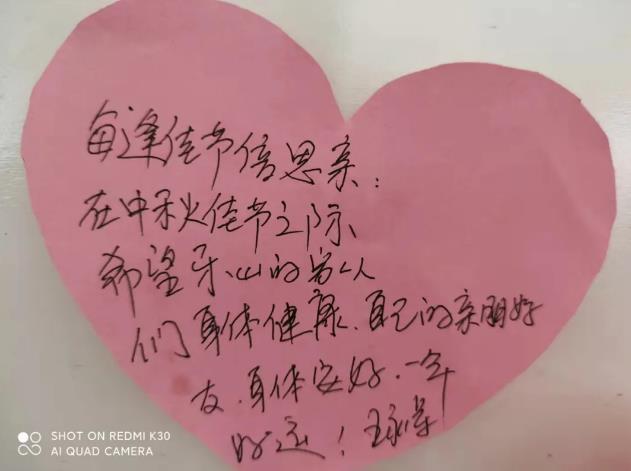 每逢佳节倍思亲:
在中秋佳节之际
希望牙山的家人
们身体健康、自己的亲朋好
友、身体安好、一年
好运!
SHOT ON REDMI K30
AI QUAD CAMERA